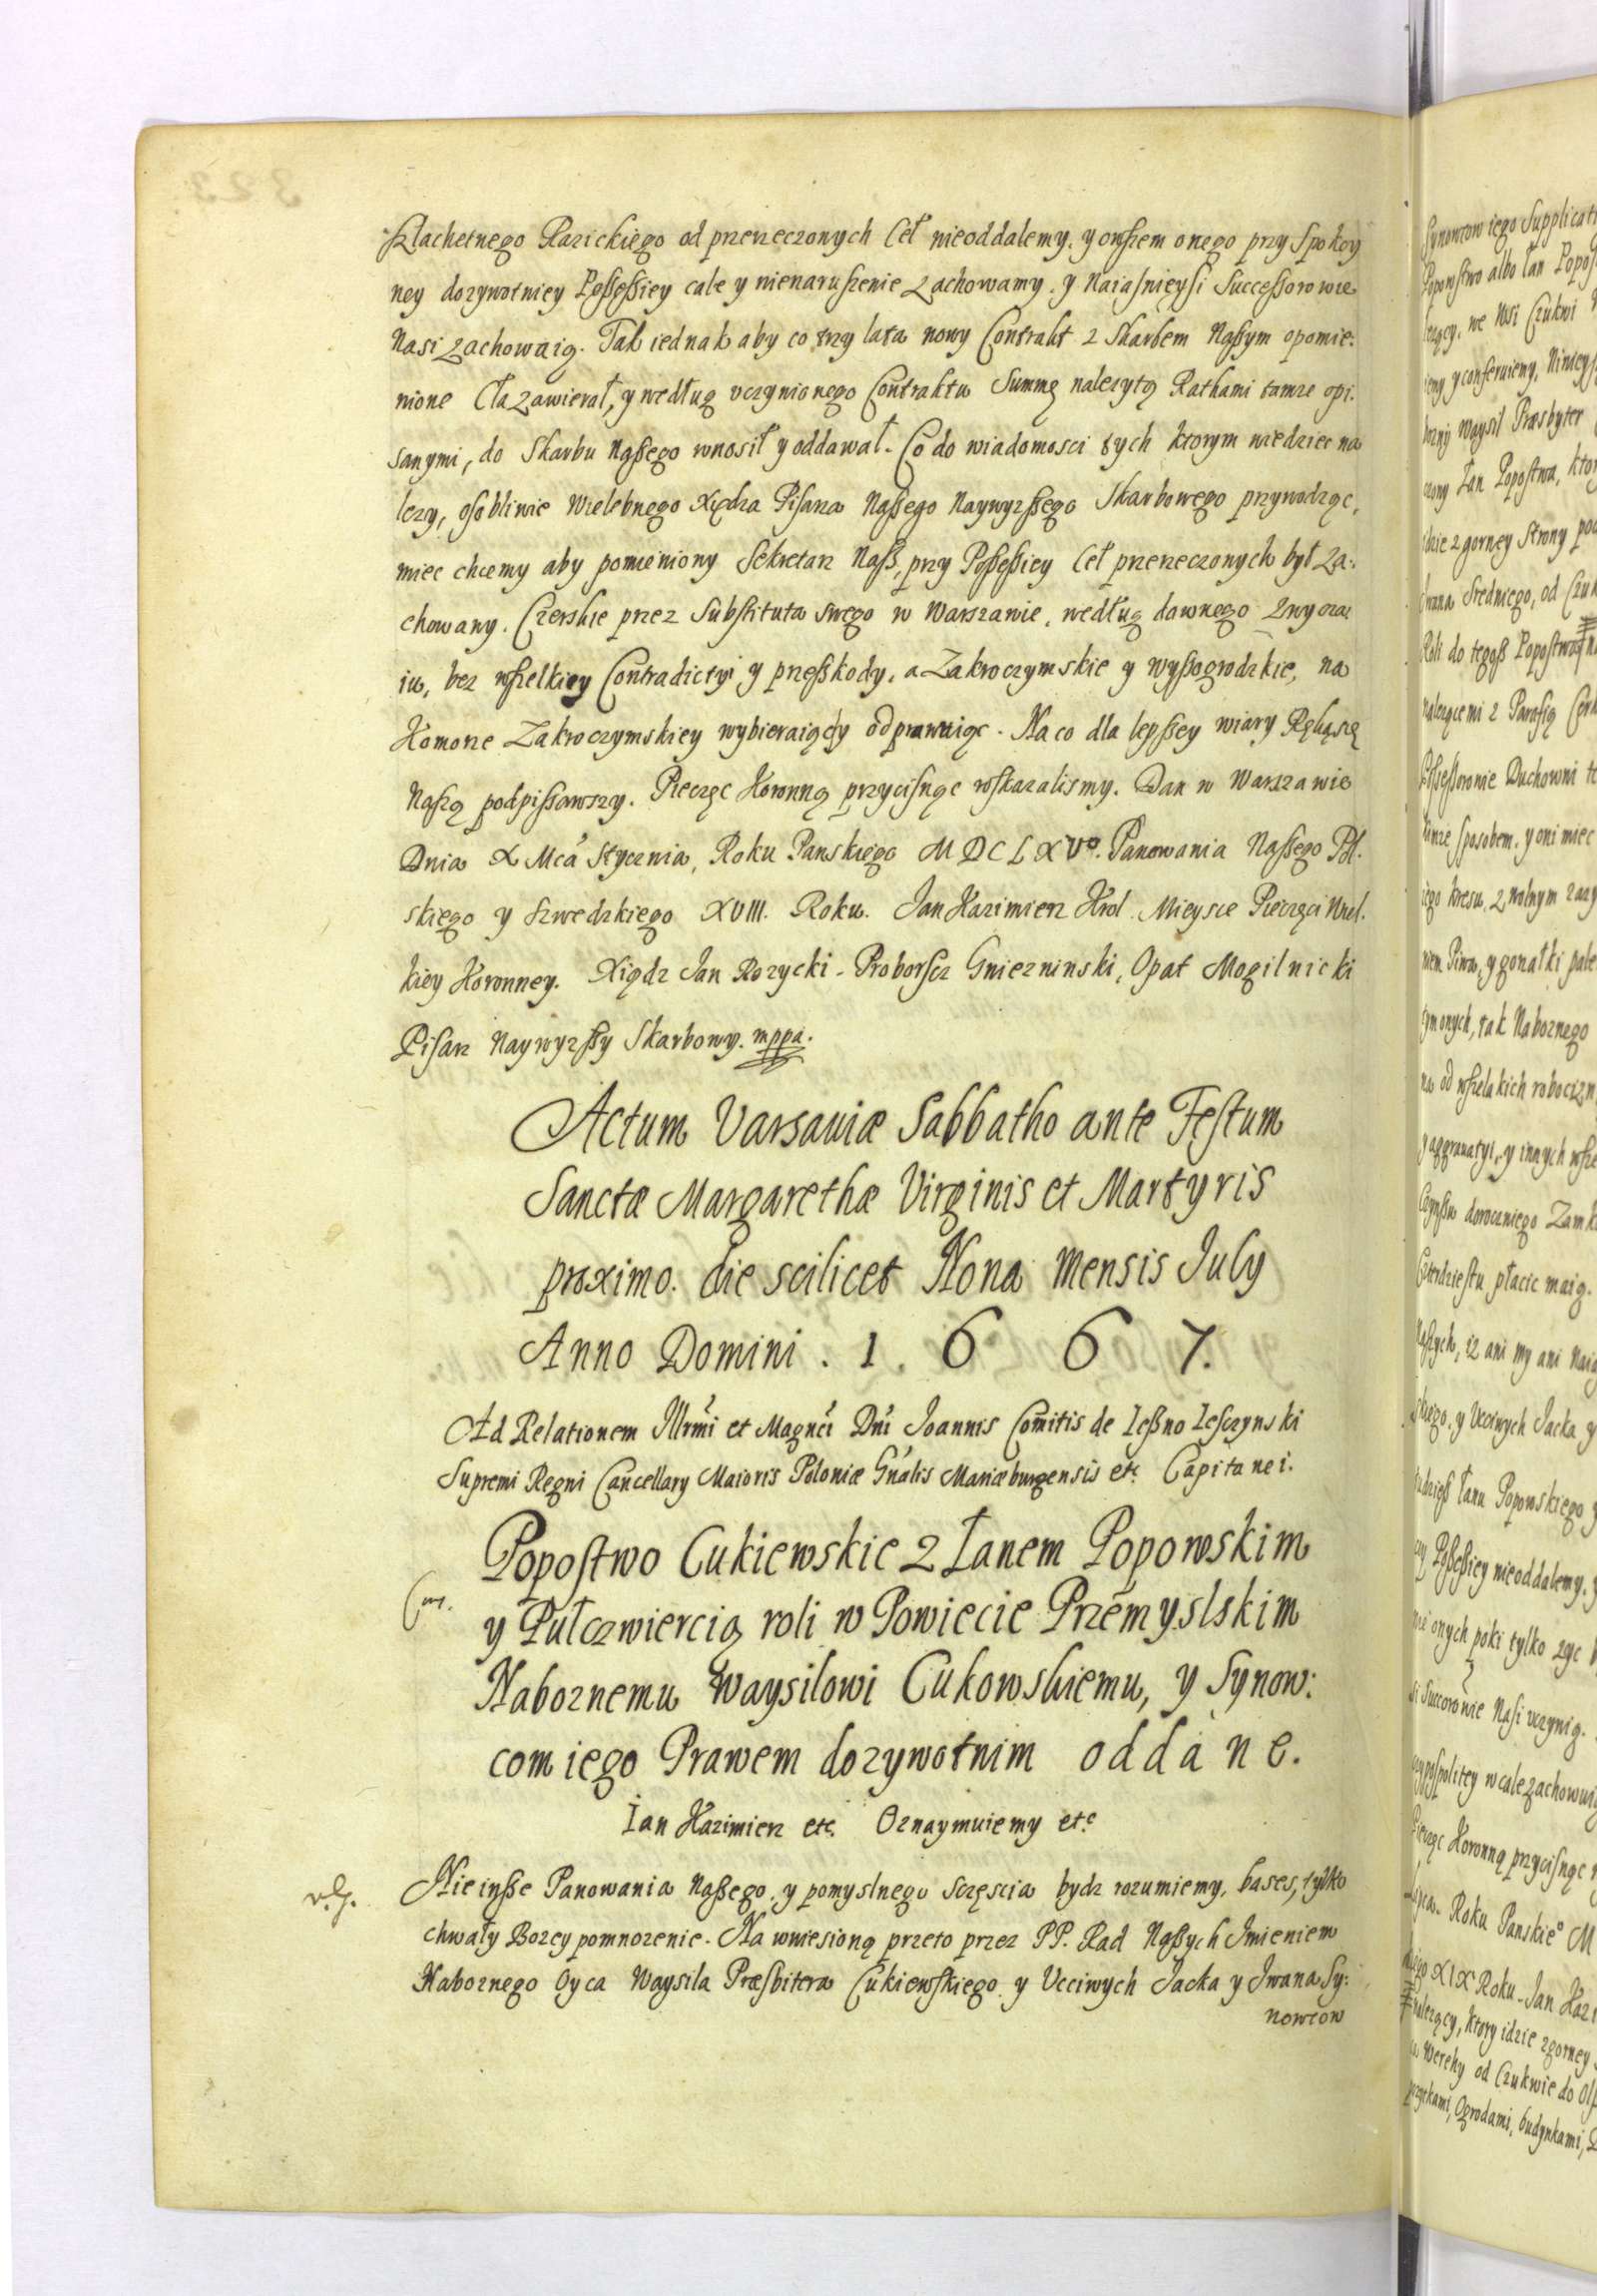 szlachetnego Razickiego od przerzeczonych Ceł nieoddalemy, y owszem onego przy Spokoy
ney dozywotniey Possessiey cale y nienaruszenie zachowamy, y Naiasnieysi Successorowie
Nasi zachowaią. Tak iednak aby co trzy lata nowy Contrakt z Skarbem Naszym opomie:
nione Cła zawierał, y według vczynionego Contraktu Summę nalezytą Rathami tamze opi.
sanymi, do Skarbu Naszego wnosił y oddawał. Co do wiadomosci tych ktorym wiedziec na
lezy, osobliwie Wielebnego Xiędza Pisarza Naszego Naywyzszego Skarbowego przywodząc,
miec chcemy aby pomieniony Sekretarz Nasz, przy Possessiey Ceł przerzeczonych był za:
chowany. Czerskie przez Substituta swego w Warszawie, według dawnego zwyczaiu
iu, bez wszelkiey Contradictyi y przeszkody, a Zakroczymskie y wyszogrodzkie, na
Komorze Zakroczymskiey wybieraiąc y odprawuiąc. Na co dla lepszey wiary Ręką się
Naszą podpisawszy. Pieczęc Koronną przycisnąc roskazalismy. Dan w Warszawie
Dnia X Mca Stycznia, Roku Panskiego MDCLXVo. Panowania Naszego Pol.
skiego y Szwedzkiego XVIII. Roku. Jan Kazimierz Krol. Mieysce Pieczęci Wiel.
kiey Koronney. Xiądz Jan Rozycki - Proboszcz Gnieznienski, Opat Mogilnicki
Pisarz Naywyzszy Skarbowy. mppa.
Actum Varsaviæ Sabbatho ante Festum
Sanctæ Margarethæ Virginis et Martyris
proximo. die scilicet Nona Mensis July
Anno Domini . 1 . 6 6 7.
Ad Relationem Illrmi et Magnci Dni Joannis Comitis de Leszno Lesczynski
Supremi Regni Cancellary Maioris Poloniæ Gnalis Mariæburgensis etc. Capitanei.
Popostwo Cukiewskie z Łanem Popowskim
y Pułczwiercią roli w Powiecie Przemyslskim
Naboznemu Waysilowi Cukowskiemu, y Synow:
com iego Prawem dozywotnim oddane.
Jan Kazimierz etc. Oznaymuiemy etc
Nie insze Panowania Naszego, y pomyslnego sczęscia bydz rozumiemy, bases, tylko
chwały Bozey pomnozenie. Na wniesioną przeto przez PP. Rad Naszych Jmieniem
Naboznego Oyca Waysila Præsbitera Cukiewskiego y Ucciwych Jacka y Jwana Sy:
nowcow
Synowcow iego Supplicat
Popowstwo albo łan Popo
we Wsi Czukwi
y conferuiemy, Ninieys
Waysil Præsbyter
Łan Popostwa, ktor
idzie z gorney strony po
Iwana Sredniego, od Czuk
Roli do tegosz Popostwa n
nalezącemi z Parafią
Possessorowie Duchowni t
sposobem, y oni miec
iego kresu, z wolnym
Piwa, y gorzałki pale
onych, tak Naboznego
na od wszelakich robocizn
y aggravatyi, y innych wsze
Czynszu dorocznego Zamk
płacic maią.
Naszych, iz ani my ani Naia
y Ucciwych Jacka y
łanu Popowskiego y
Possessiey nieoddalemy, y
onych poki tylko zyc
Successorowie Nasi vczynią.
w cale zachowui
Pieczęc Koronną przycisnąc
Roku Panskieo M
XIX Roku. Jan Kazi
nalezący, ktory idzie z gorney
Werehy od Czukwie do
Ogrodami, budynkami,